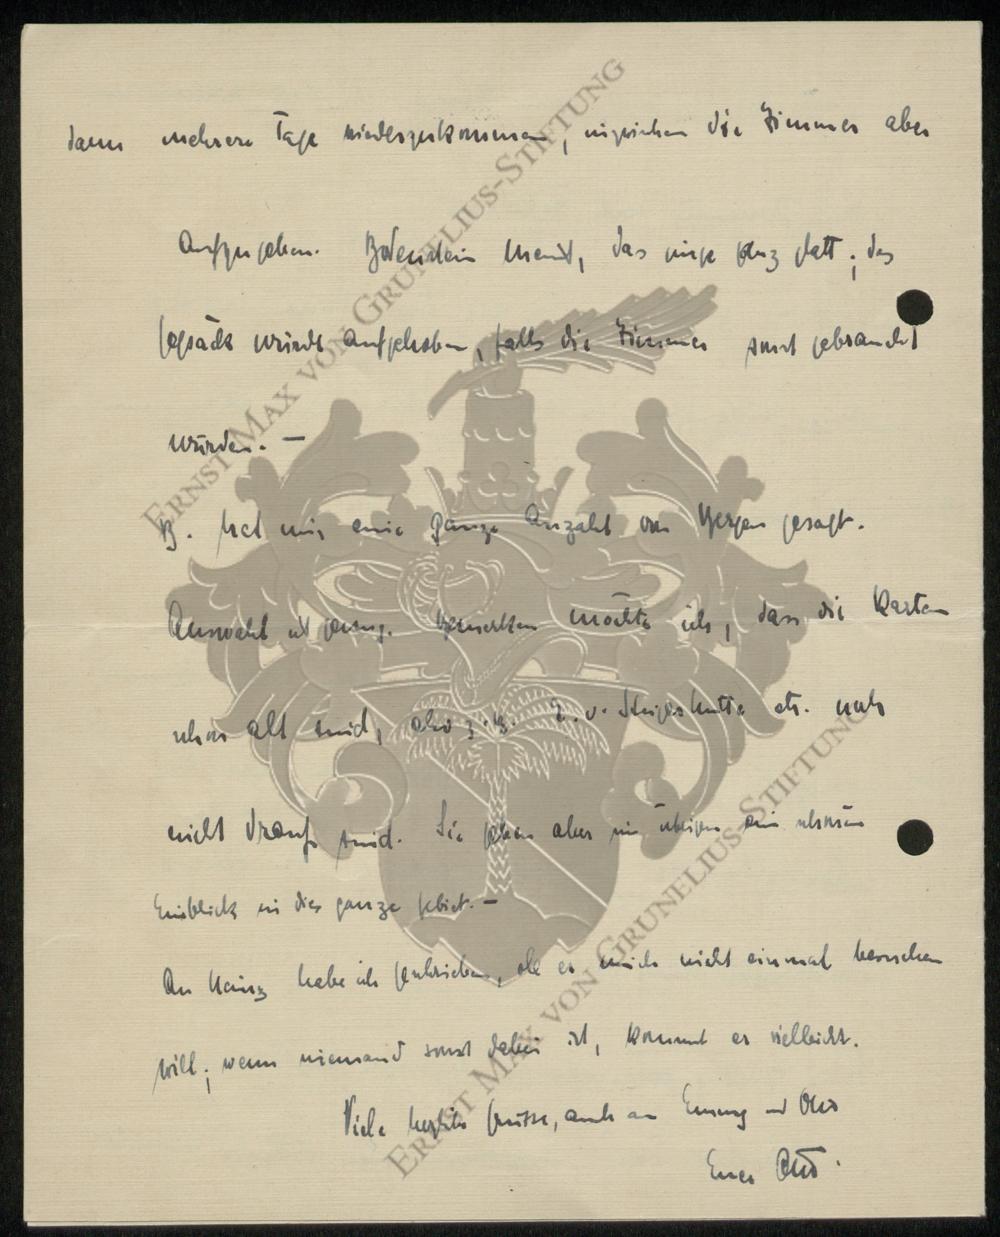 dann mehrere Tage niederzukommen, inzwischen die Zimmer aber
aufzugeben. Bodenstein meint, das ginge ganz glatt; das
Gepäck würde aufgehoben, falls die Zimmer sonst gebraucht
würden. —
B. hat mir eine ganze Anzahl von Bergen gesagt.
Auswahl ist genug. Bemerken möchte ich, dass die Karten
schon alt sind, also z. B. E. v. Steigerhütte etc. noch
nicht drauf sind. Sie geben aber im übrigen ein schönen
Einblick in das ganze Gebiet. —
An Heinz habe ich geschrieben, ob er mich nicht einmal besuchen
will; wenn niemand sonst dabei ist, kommt er vielleicht.
Viele herzliche Grüsse, auch an Emmy und
Euer Otto.
ERNST MAX VON GRUNELIUS-STIFTUNG
ERNST MAX VON GRUNELIUS-STIFTUNG